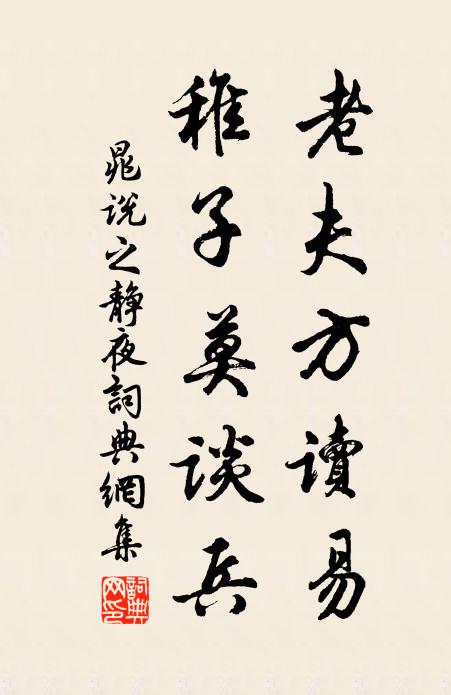 老夫方讀易
稚子莫談兵
晁説之靜夜詞典網集
詞典网印